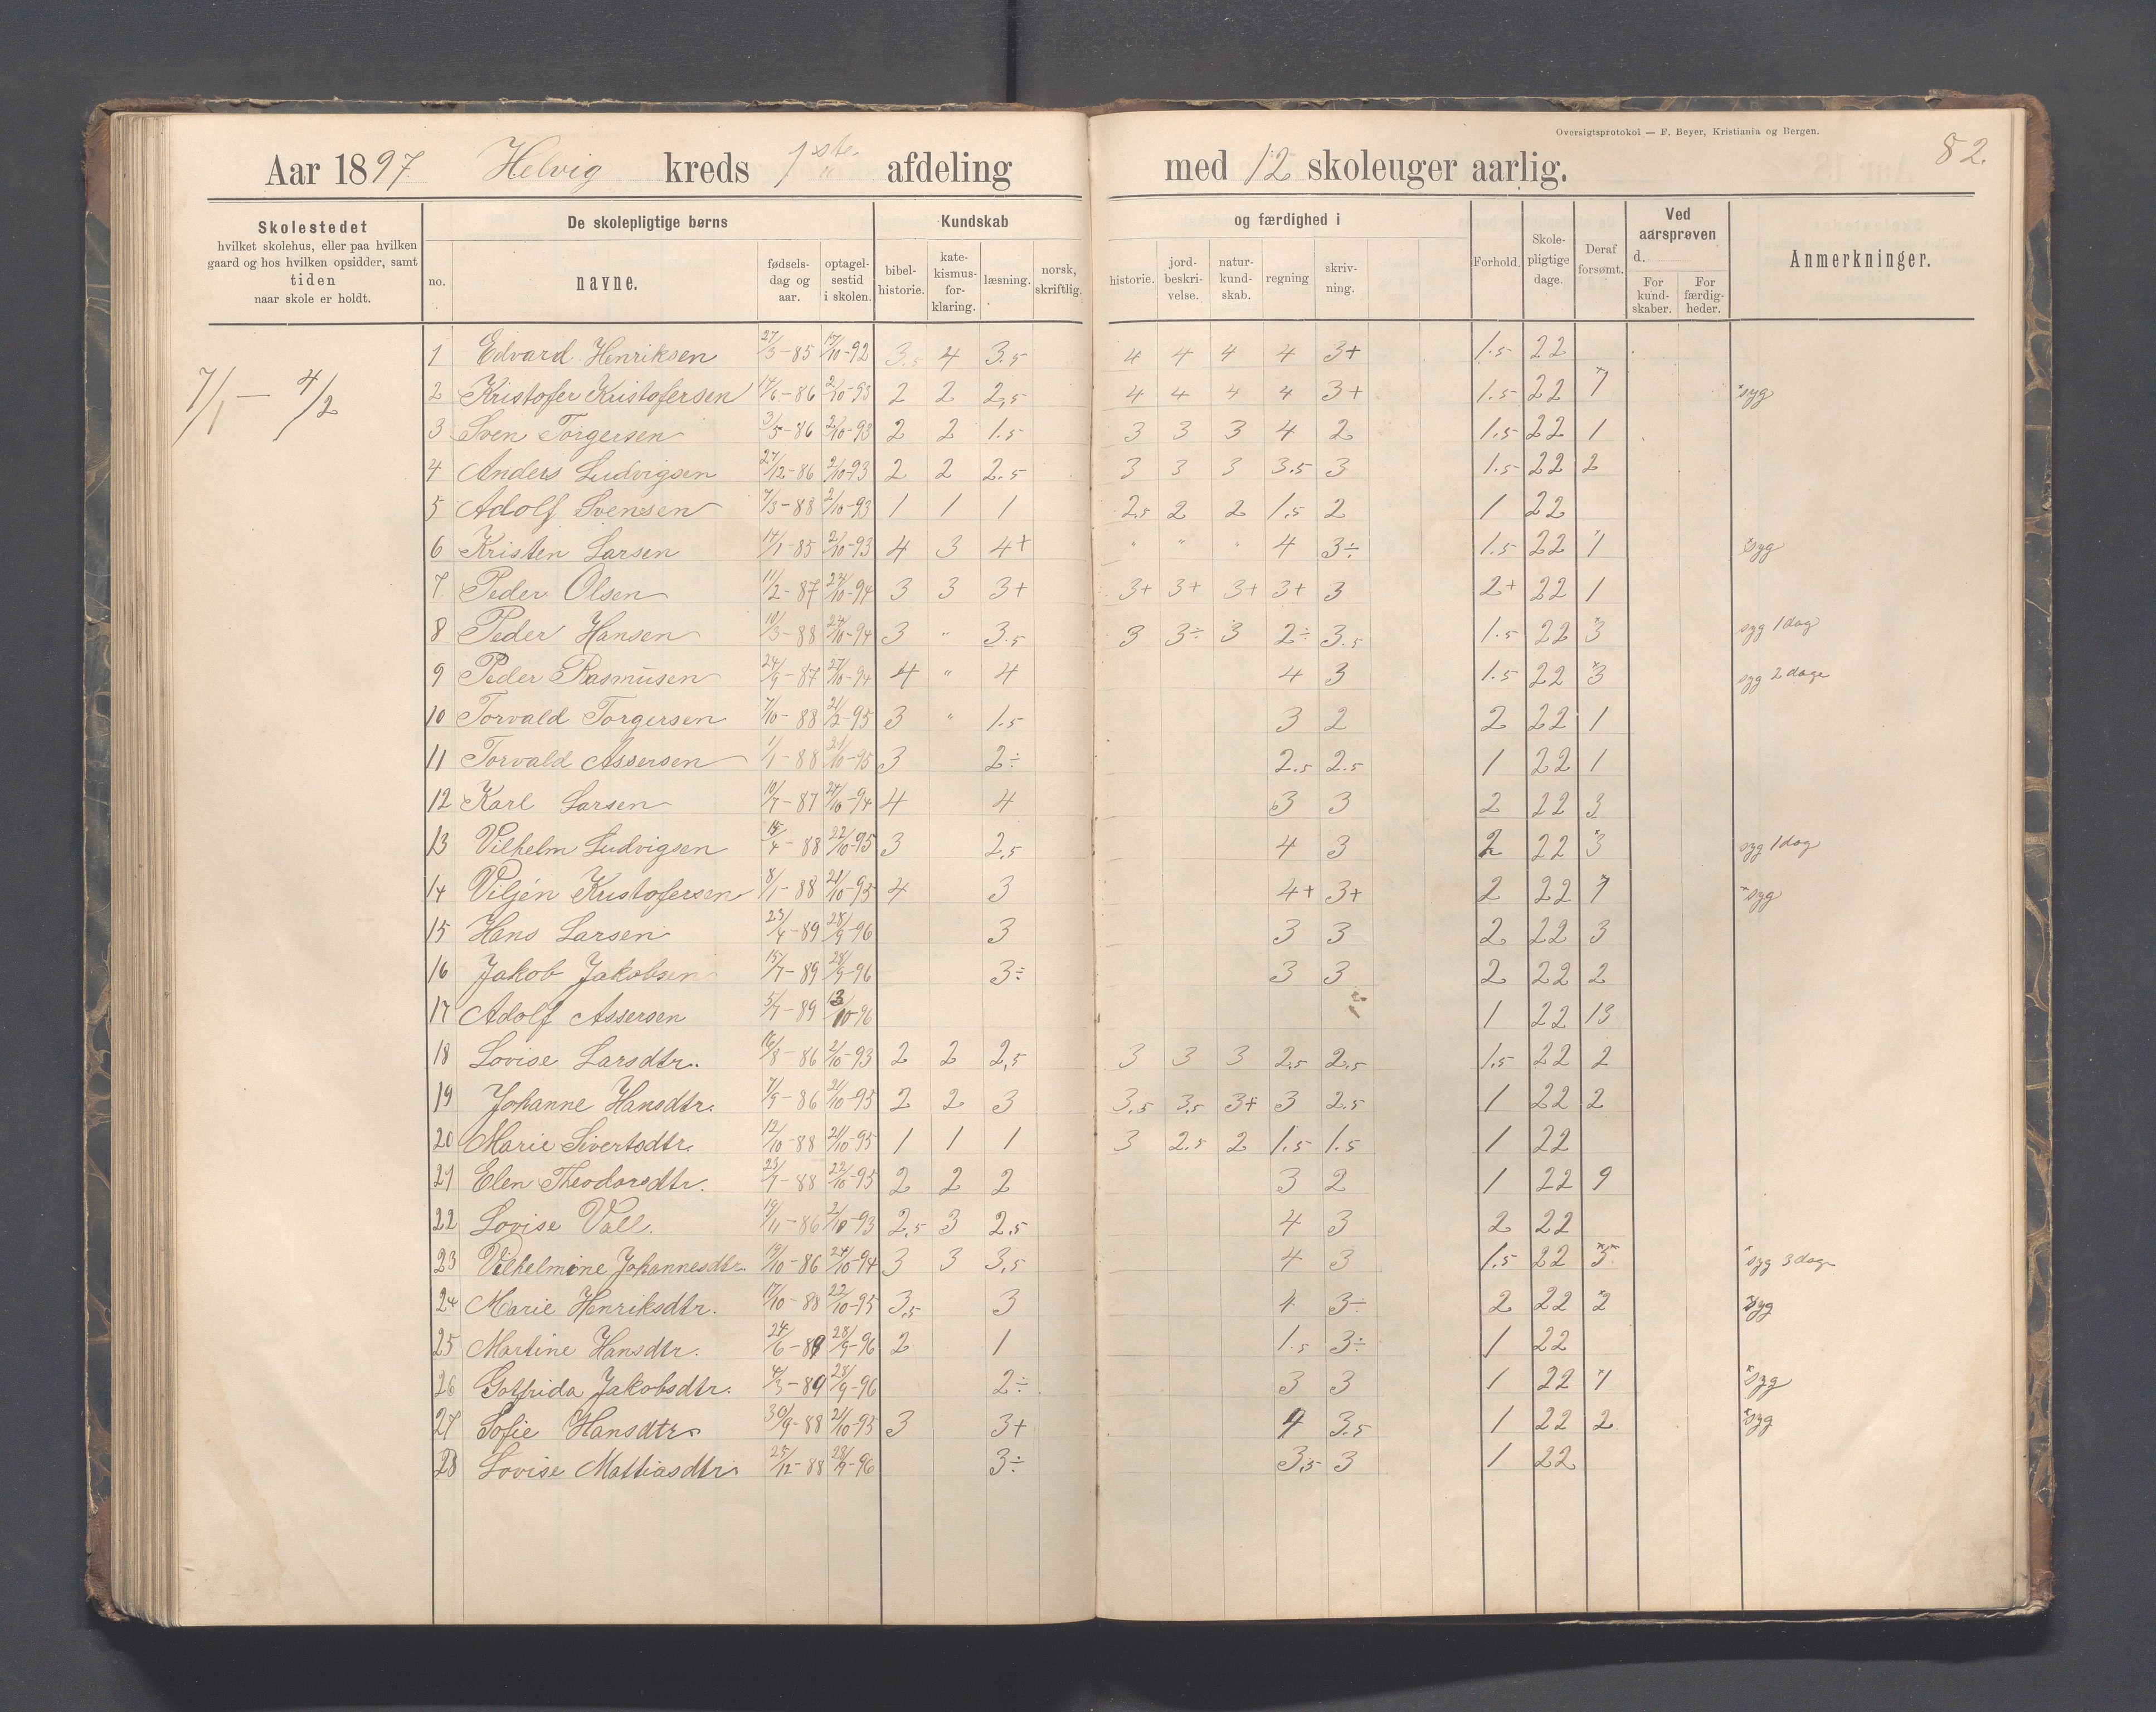 Oversigtsprotokol — F. Beyer, Kristiania og Bergen.
82.
Aar 1897. Helvig kreds 1ste afdeling med 12 skoleuger aarlig.
Skolestedet hvilket skolehus, eller paa hvilken gaard og hos hvilken opsidder, samt tiden naar skole er holdt.
De skolepligtige børns
Kundskab og færdighed i
no. navne. fødselsdag og aar. optagelsestid i skolen. bibelhistorie. katekismusforklaring. læsning. norsk, skriftlig. historie. jordbeskrivelse. naturkundskab. regning skrivning. Forhold. Skolepligtige dage. Deraf forsømt. Ved aarsprøven d. For kundskaber. For færdigheder. Anmerkninger.
7/1 — 4/2
1 Edvard Henriksen 27/3-85 17/10-92 3.5 4 3.5 4 4 4 4 3+ 1.5 22
2 Kristofer Kristofersen 17/6-86 2/10-93 2 2 2,5 4 4 4 4 3+ 1.5 22 *7 *syg
3 Sven Torgersen 3/5-86 2/10-93 2 2 1.5 3 3 3 4 2 1.5 22 1
4 Anders Ludvigsen 27/12-86 2/10-93 2 2 2.5 3 3 3 3.5 3 1.5 22 2
5 Adolf Svensen 7/3-88 2/10-93 1 1 1 2,5 2 2 1,5 2 1 22
6 Kristen Larsen 17/1-85 2/10-93 4 3 4+ " " " 4 3÷ 1.5 22 *1 *syg
7 Peder Olsen 11/2-87 24/10-94 3 3 3+ 3+ 3+ 3+ 3+ 3 2+ 22 1
8 Peder Hansen 10/3-88 24/10-94 3 " 3.5 3 3÷ 3 2÷ 3.5 1.5 22 *3 syg 1 dag
9 Peder Rasmusen 24/9-87 27/10-94 4 " 4 4 3 1.5 22 *3 syg 2 dage
10 Torvald Torgersen 7/10-88 21/2-95 3 " 1.5 3 2 2 22 1
11 Torvald Assersen 1/1-88 21/10-95 3 2÷ 2.5 2.5 1 22 1
12 Karl Larsen 10/7-87 24/10-94 4 4 3 3 2 22 3
13 Vilhelm Ludvigsen 15/4-88 22/10-95 3 2,5 4 3 2 22 *3 syg 1 dag
14 Viljén Kristofersen 8/1-88 21/10-95 4 3 4+ 3+ 2 22 *1 *syg
15 Hans Larsen 23/4-89 28/9-96 3 3 3 2 22 3
16 Jakob Jakobsen 15/7-89 28/9-96 3÷ 3 3 2 22 2
17 Adolf Assersen 5/7-89 13/10-96 1 22 13
18 Lovise Larsdtr. 16/8-86 2/10-93 2 2 2,5 3 3 3 2,5 2,5 1.5 22 2
19 Johanne Hansdtr. 7/9-86 21/10-93 2 2 3 3,5 3,5 3+ 3 2.5 1 22 2
20 Marie Sivertsdtr. 12/10-88 21/10-95 1 1 1 3 2.5 2 1.5 1.5 1 22
21 Elen Theodorsdtr. 23/7-88 22/10-95 2 2 2 3 2 1 22 9
22 Lovise Vall. 19/11-86 2/10-93 2,5 3 2,5 4 3 2 22
23 Vilhelmine Johannesdtr. 19/10-86 24/10-94 3 3 3,5 4 3 1,5 22 *5 *syg 3 dage
24 Marie Henriksdtr. 17/10-88 22/10-95 3,5 3 4 3÷ 2 22 *2 *syg
25 Martine Hansdtr. 24/6-89 28/9-96 2 1 1.5 3÷ 1 22
26 Gotfrida Jakobsdtr. 4/3-89 28/9-96 2÷ 3 3 1 22 *1 *syg
27 Sofie Hansdtr. 30/9-88 21/10-95 3 3+ 4 3.5 1 22 2 *syg
28 Lovise Mattiasdtr. 25/12-88 28/9-96 3÷ 3,5 3 1 22